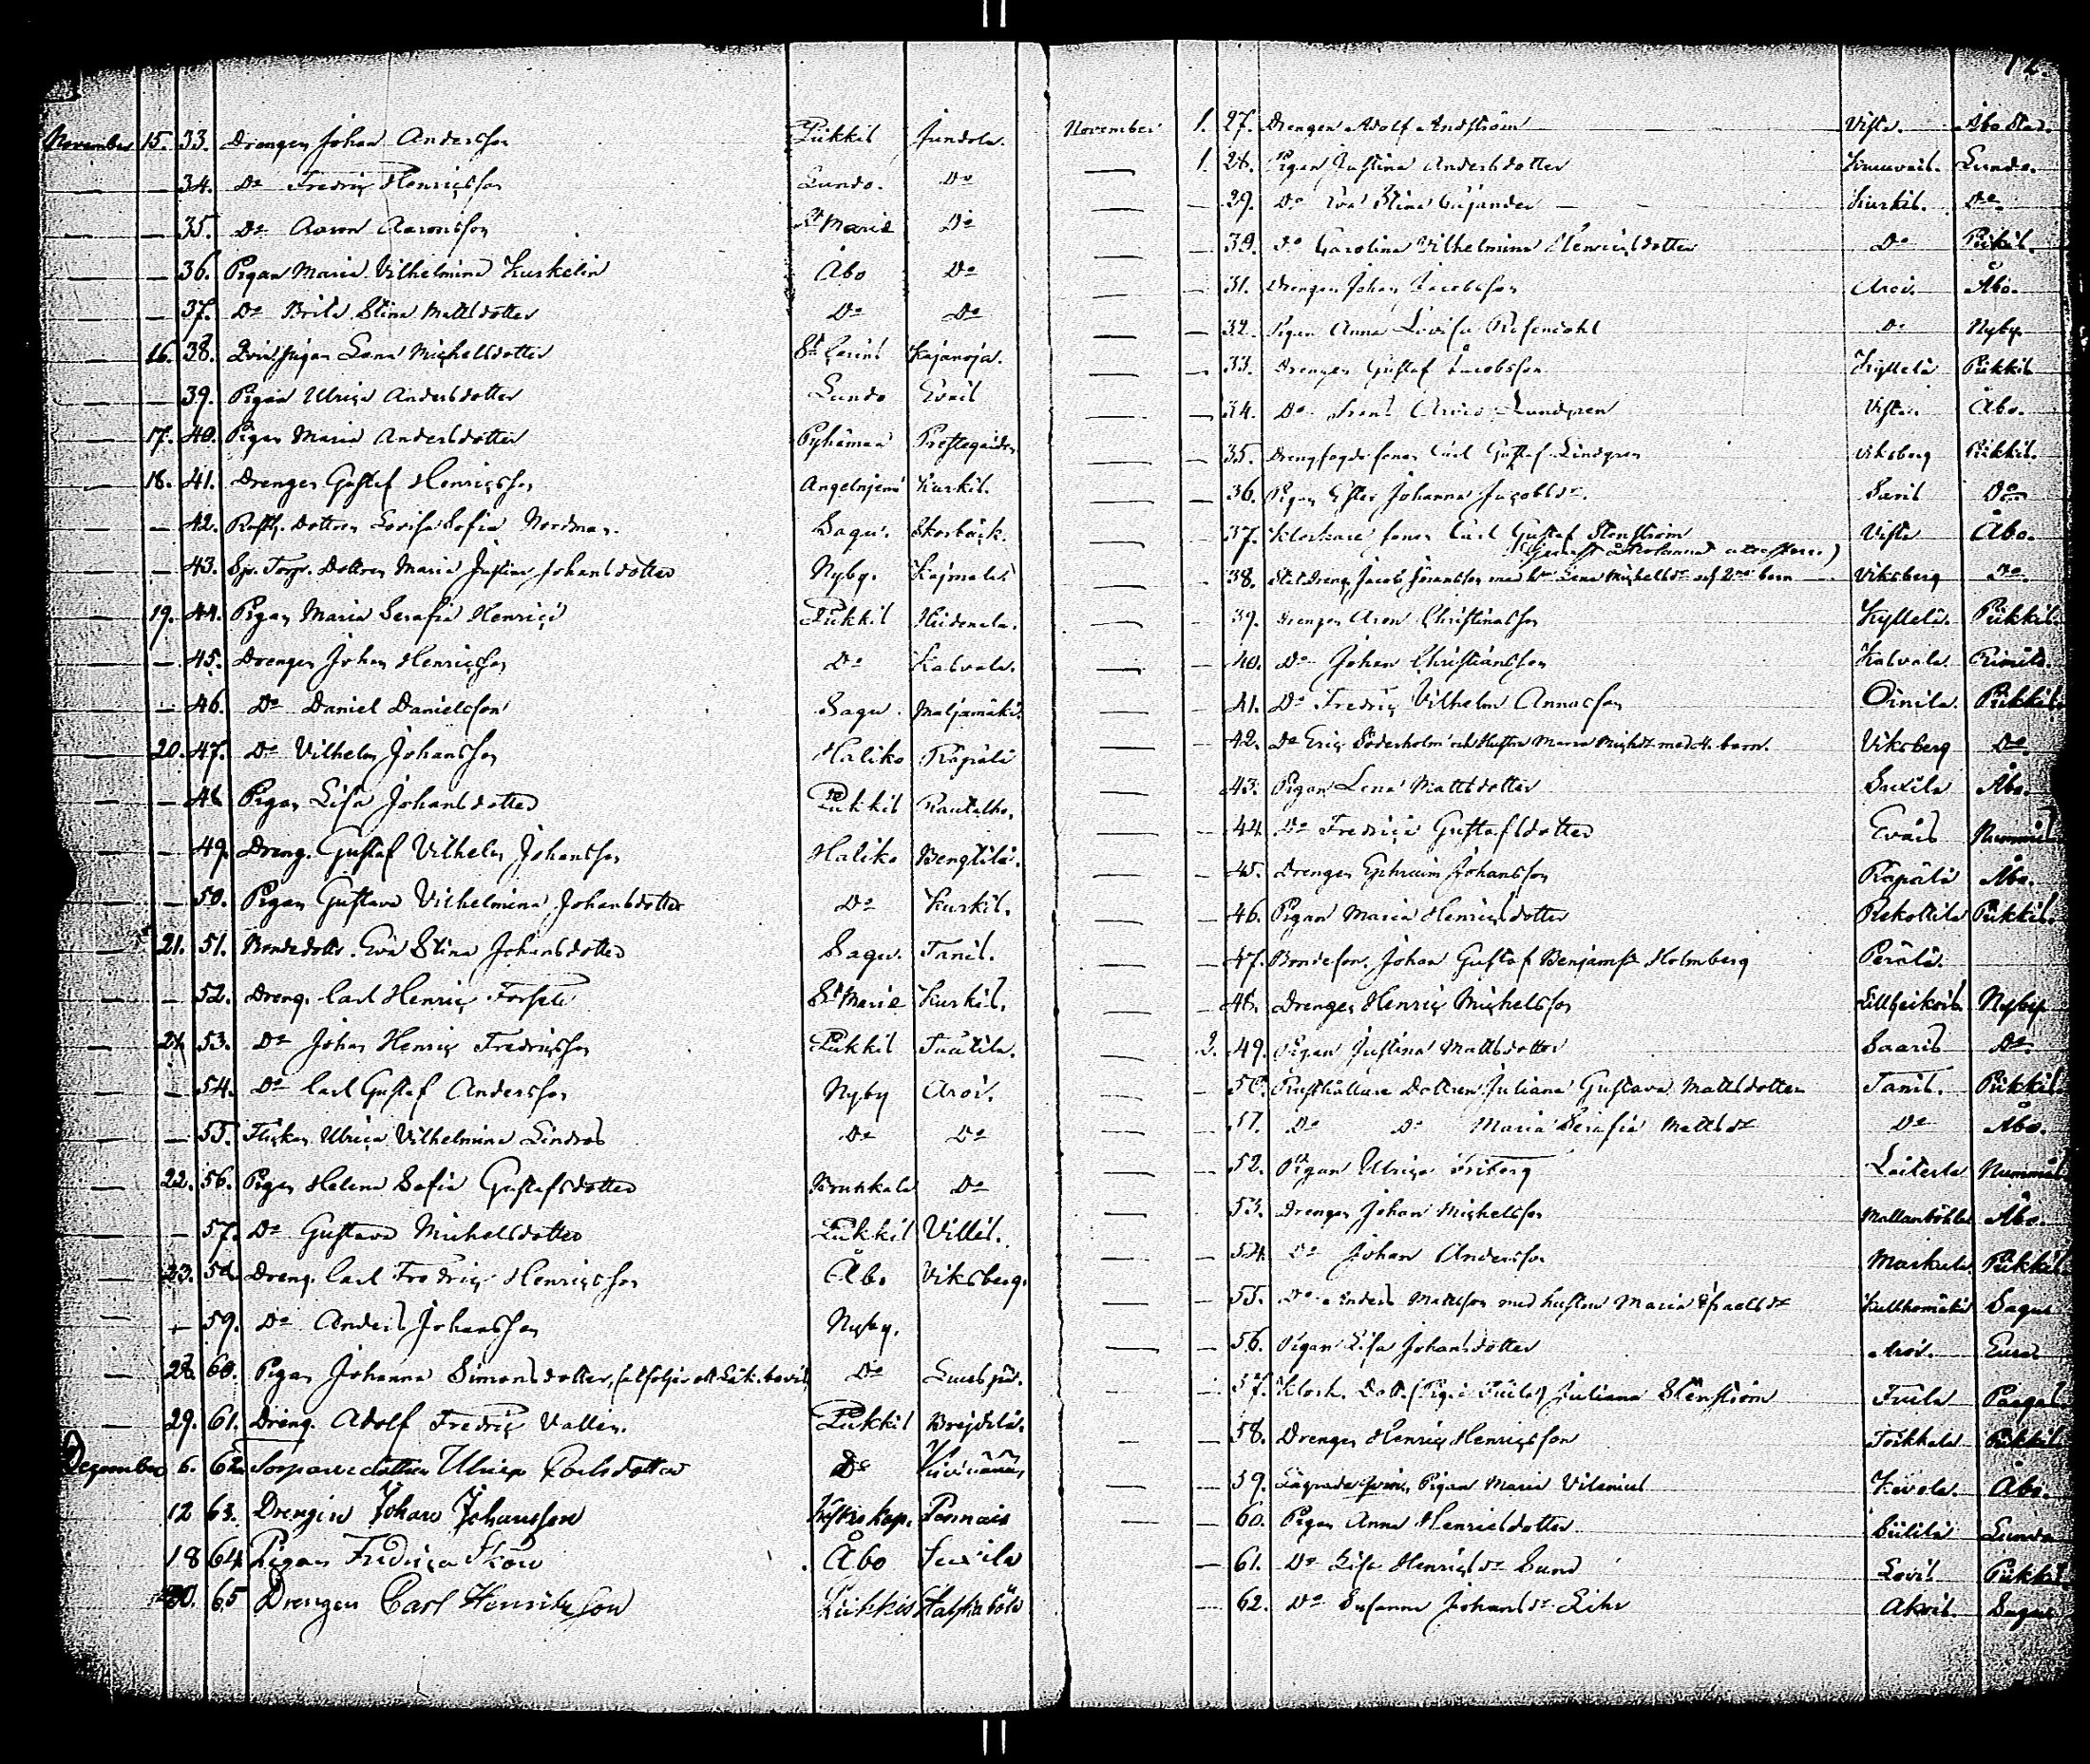 November 15. 33. Drengen Johan Andersson Pikkil Jundola.
— — 34. Do Fredric Henricsson Lundo. Do
— — 35. Do Aaron Aaronsson St Marie Do
— — 36. Pigan Maria Vilhelmina Kurkelin Åbo Do
— — 37. Do Brita Stina Mattsdotter Do Do
— 16. 38. Qvinspigan Lena Michelsdotter Kajanoja.
— — 39. Pigan Ulrica Andersdotter Lundo Eväil
— 17. 40. Pigan Maria Andersdotter Pyhämaa Prestegården
— 18. 41. Drengen Gustaf Henricsson Angelnjemi Kurkil.
— — 42. Rusth. Dottren Lovisa Sofia Nordman. Sagu. Skorbäck.
— — 43. Sjv. Torp. Dottren Maria Justina Johansdotter Nyby. Kajmala.
— 19. 44. Pigan Maria Serafia Henrici Pikkil Hidenala.
— — 45. Drengen Johan Henricsson Do Katvala.
— — 46. Do Daniel Danielsson Sagu. Maljamäki.
— 20. 47. Do Vilhelm Johansson Haliko Räpälä
— — 48 Pigan Lisa Johansdotter Pikkil Rautalho.
— — 49. Dreng. Gustaf Vilhelm Johansson Haliko Bengtilä.
— — 50. Pigan Gustava Vilhelmina Johansdotter Do Kurkil.
— 21. 51. Bondedottr. Eva Stina Johansdotter Sagu. Tanil.
— — 52. Dreng. Carl Henric Forsell St Marie Kurkil.
— 21. 53. Do Johan Henric Fredricsson Pikkil Tuutila.
— — 54. Do Carl Gustaf Andersson Nyby Arois.
— — 55. Flickan Ulrica Vilhelmina Lindros Do Do
— 22. 56. Pigan Helena Sofia Gustafsdotter Brunkala Do
— — 57. Do Gustava Michelsdotter Pikkil Villil.
— 23. 58. Dreng. Carl Fredric Henricsson Åbo Viksberg.
— — 59. Do Anders Johansson Nyby.
— 28. 60. Pigan Johanna Simonsdotter, Do
— 29. 61. Dreng. Adolf Fredric Vallen. Pikkil Brejdilä.
December 6. 62. Torparedottren Ulrica Carlsdotter Do Kivinäinen
12 63. Drengen Johan Johansson Pennais
18 64 Pigan Fredrica Skön Åbo Suxila
20. 65 Drengen Carl Henriksson Pikkis
November 1. 27. Drengen Adolf Andström Vista. Åbo Stad.
— 1. 28. Pigan Justina Andersdotter Lundo.
— 29. Do Eva Stina Cajander — Kurkil. Do
— 30. Do Carolina Vilhelmina Henricsdotter Do Pikkil.
— 31. Drengen Johan Jacobsson Arois. Åbo.
— — 32. Pigan Anna Lovisa Rosendahl Do Nyby.
— — 33. Drengen Gustaf Jacobsson Hyttelä Pikkil
— — 34. Do Frans Arvid Lundgren Vista. Åbo.
— — 35. Drengfogde sonen Carl Gustaf Lindgren Viksberg Pikkil.
— — 36. Pigan Ester Johanna Jacobsdr. Saril Do
— — 37. Klockare sonen Carl Gustaf Stenström Vista Åbo.
— — 38. StatDreng Jacob Göransson med hu Lena Michelsdr och 2ne barn — Viksberg Do
— — 39. Drengen Aron Christiansson Hyttelä. Pikkil.
— — 40. Do Johan Christiansson Katvala Rimito.
— — 41. Do Fredric Vilhelm Annasson Oinila Pikkil.
— — 42. Do Eric Söderholm och Hustru Maria Michsdr med 4. barn. Viksberg Do
— 43. Pigan Lena Mattsdotter Suxila Åbo.
— — 44. Do Fredrica Gustafsdotter Eväis Nummis
— — 45. Drengen Ephraim Johansson Räpälä Åbo.
— — 46. Pigan Maria Henricsdotter Rekottila Pikkil.
— — 47. Bondeson. Johan Gustaf Benjamss Holmberg Perälä.
— — 48. Drengen Henric Michelsson Nyby
— 2. 49. Pigan Justina Mattsdotter Saaris Do
— — 50. Rusthållare Dottren Juliana Gustava Mattsdotter Tanil. Pikkil
— — 51. Do Do Maria Serafia Mattsdr Do Åbo.
— — 52. Pigan Ulrica Friberg Leiterla Nummis
— — 53. Drengen Johan Michelsson Åbo.
— — 54. Do Johan Andersson Markula Pikkil
— — 55. Do Anders Mattsson med hustru Maria Israelsdr Sagu
— — 56. Pigan Lisa Johansdotter Arois. Eura.
— 57. Klock. Dott. (Piga i Tuila) Juliana Stenström Tuila Pargas
— — 58. Drengen Henric Henricsson Toikkala Pikkil
— — 59. Lägrade qvins. Pigan Maria Vilenius Kevola. Åbo.
— — 60. Pigan Anna Henricsdotter Siitilä Lundo
— 61. Do Lisa Henricsdr Sund Lovil Pikkil.
— 62. Do Susanna Johansdr Eihr Akois. Sagu